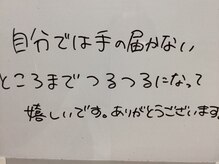 自分では手の届かない
ところまでつるつるになって
嬉しいです。ありがとうございます